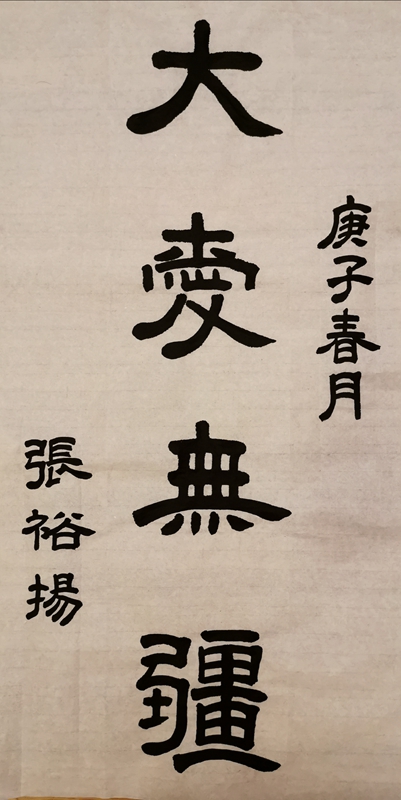 庚子春月
大愛無疆
張裕揚